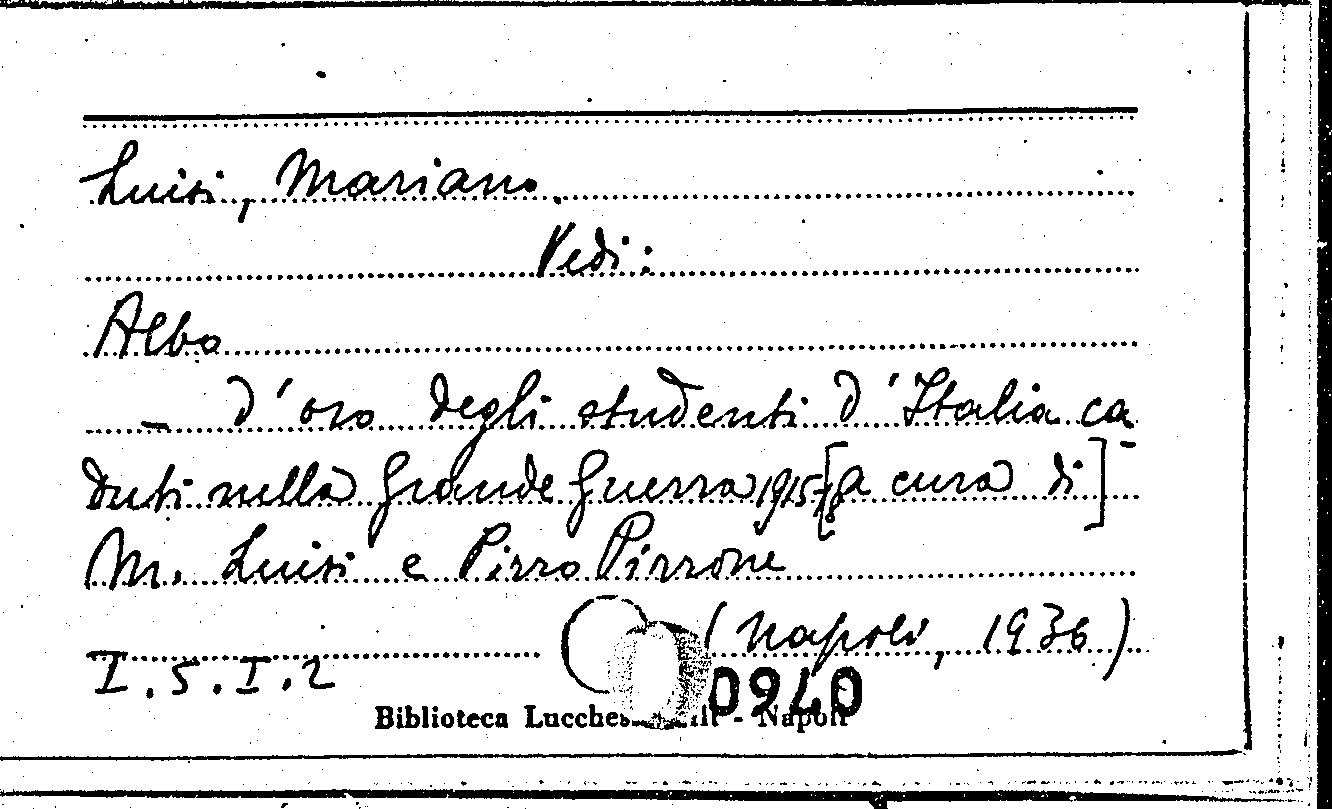 Luisi, Mariano
Vedi:
Albo
— d'oro degli studenti d'Italia ca-
duti nella Grande Guerra 1915-18 [a cura di]
M. Luisi e Pirro Pirrone
(Napoli, 1936)
I.5.I.2
0940
Biblioteca - Napoli